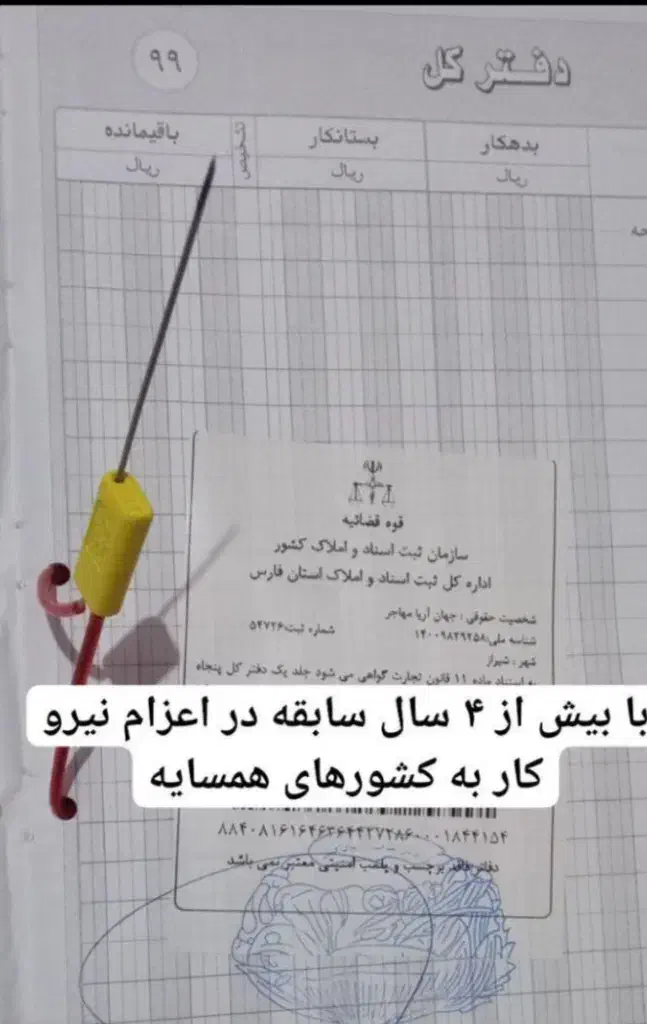 ۹۹
دفتر کل
بدهکار
بستانکار
تشخیص
باقیمانده
ریال
ریال
ریال
قوه قضائیه
سازمان ثبت اسناد و املاک کشور
اداره کل ثبت اسناد و املاک استان فارس
شخصیت حقوقی : جهان آریا مهاجر
شناسه ملی:۱۴۰۰۹۸۲۹۲۵۸ شماره ثبت:۵۴۷۲۶
شهر : شیراز
به استناد ماده ۱۱ قانون تجارت گواهی می شود جلد یک دفتر کل پنجاه
با بیش از ۴ سال سابقه در اعزام نیرو
کار به کشورهای همسایه
دفاتر فاقد برچسب و پلمب امنیتی معتبر نمی باشد